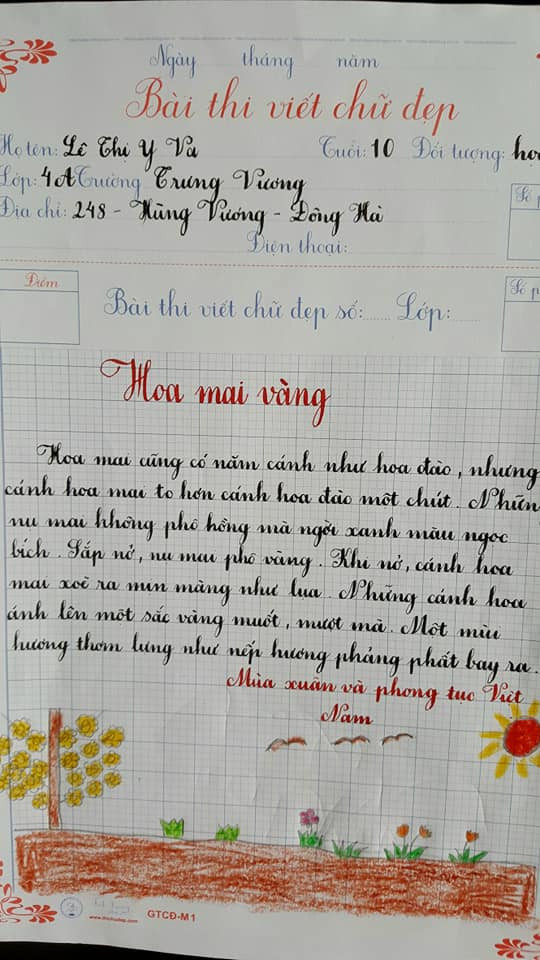 Ngày tháng năm
Bài thi viết chữ đẹp
Họ tên: Lê Thi Y Va Tuổi: 10 Đối tượng: học
Lớp: 4A Trường Trưng Vương
Địa chỉ: 248 - Hùng Vương - Đông Hà
Điện thoại:
Điểm
Bài thi viết chữ đẹp số: Lớp:
Số p
Số p
Hoa mai vàng
Hoa mai cũng có năm cánh như hoa đào, nhưng
cánh hoa mai to hơn cánh hoa đào một chút. Nhữn
nụ mai không phô hồng mà ngời xanh màu ngọc
bích. Sắp nở, nụ mai phô vàng. Khi nở, cánh hoa
mai xoè ra mịn màng như lụa. Những cánh hoa
ánh lên một sắc vàng muốt, mượt mà. Một mùi
hương thơm lựng như nếp hương phảng phất bay ra.
Mùa xuân và phong tục Việt
Nam
GTCĐ-M1